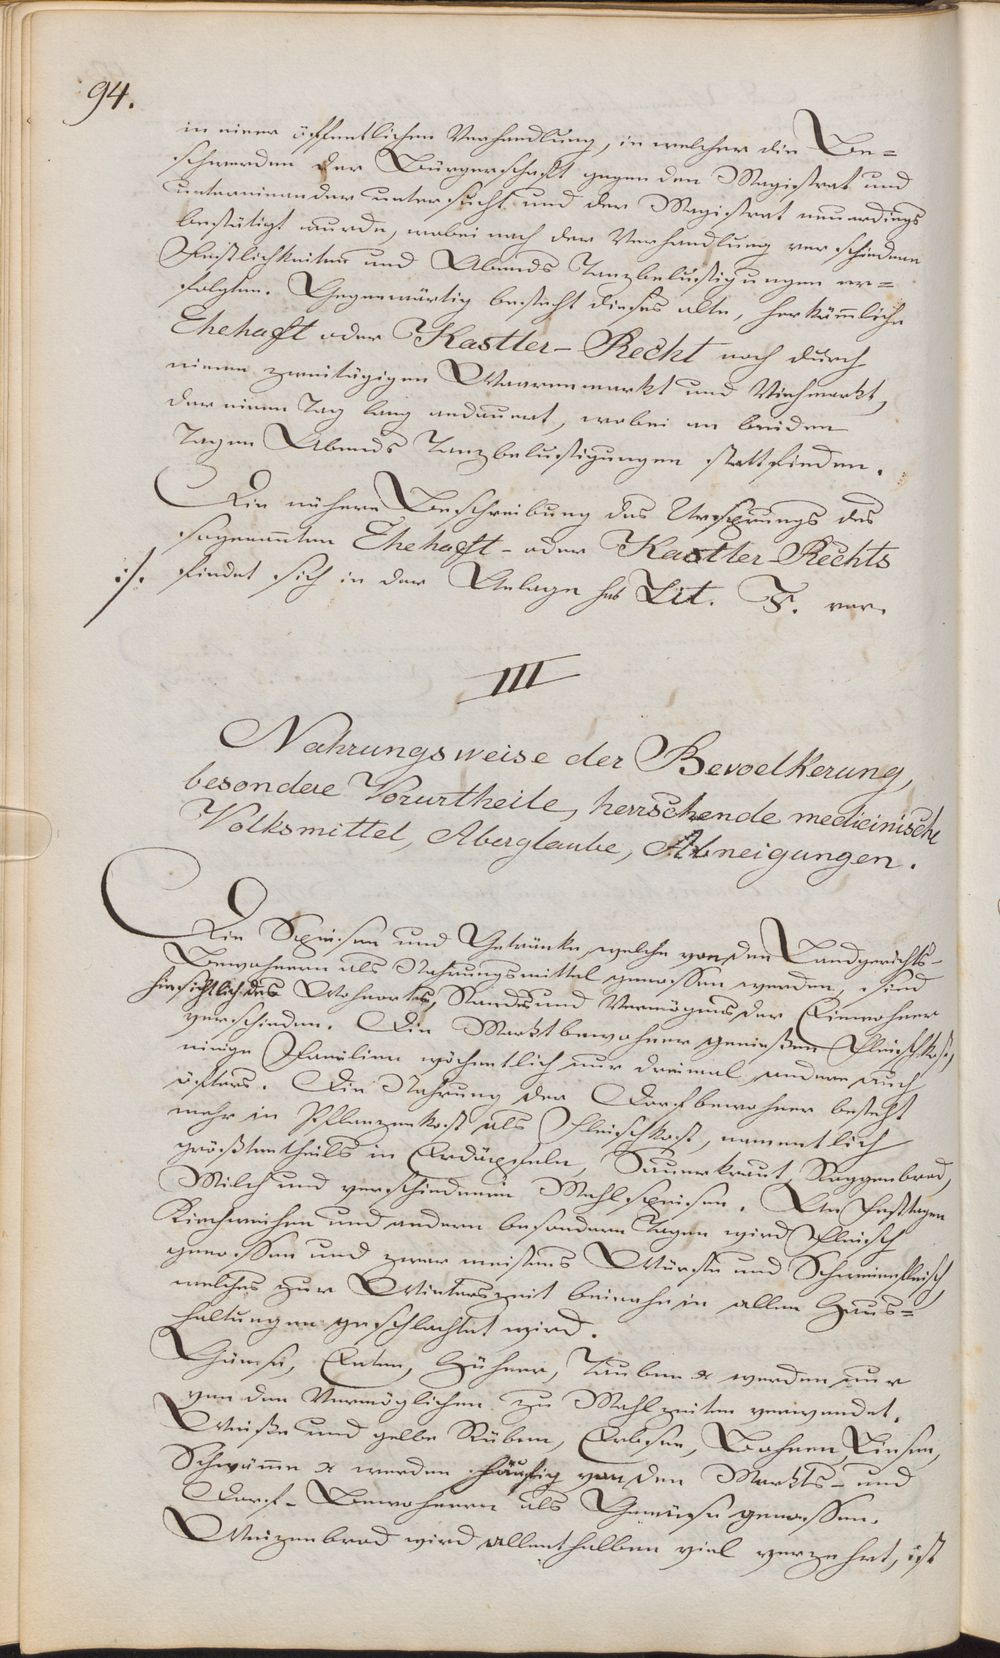 94.
in einer öffentlichen Verhandlung, in welcher die Be=
schwerden der Bürgerschaft gegen den Magistrat und
untereinander untersucht und der Magistrat neuerdings
bestätigt wurde, wobei nach der Verhandlung verschiedene
Festlichkeiten und Abends Tanzbelustigungen er=
folgten. Gegenwärtig besteht dieses alte, herkömliche
Ehehaft oder Kastler-Recht noch durch
einen zweitägigen Waarenmarkt und Viehmarkt,
der einen Tag lang andauert, wobei an beiden
Tagen Abends Tanzbelustigungen stattfinden.
Die nähere Beschreibung des Ursprungs des
sogenannten Ehehaft- oder Kastler Rechts
./. findet sich in der Anlage sub Lit. F. vor.
III
Nahrungsweise der Bevoelkerung,
besondere Vorurtheile, herrschende medicinische
Volksmittel, Aberglaube, Abneigungen.
Die Speisen und Getränke welche von den Landgerichts-
Bewohnern als Nahrungsmittel genossen werden, sind
hinsichtlich des Wohnortes, Standes und Vermögens der Einwohner
verschieden. Die Marktbewohner genießen Fleischkost,
einige Familien wöchentlich nur dreimal andere auch
öfters. Die Nahrung der Dorfbewohner besteht
mehr in Pflanzenkost als Fleischkost, namentlich
größtentheils in Erdäpfeln, Sauerkraut, Roggenbrod,
Milch und verschiedenen Mehlspeisen. An Festtagen
Kirchweihen und andern besondern Tagen wird Fleisch
genossen und zwar meistens Würste und Schweinefleisch,
welches zur Winterszeit beinahe in allen Haus=
haltungen geschlachtet wird.
Gänse, Enten, Hühner, Tauben &c werden nur
von den Vermöglichen zu Mahlzeiten verwendet.
Weiße und gelbe Rüben, Erbsen, Bohnen, Linsen,
Schwämme &c werden häufig von den Markts- und
Dorf-Bewohnern als Gemüse genossen.
Weizenbrod wird allenthalben viel verzehrt, ist